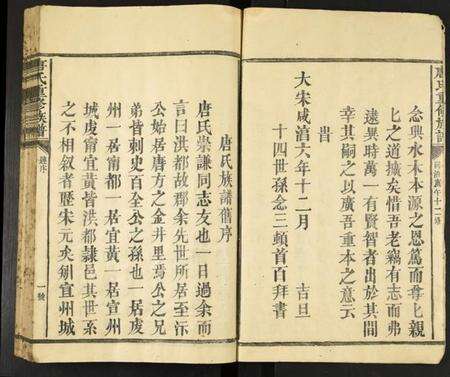 唐氏重修族譜
念興水木本源之恩篤而尊匕親
匕之道擴矣惜吾老竊有志而弗
逮異時萬一有賢智者出於其間
幸其嗣之以廣吾重本之意云
旹
大宋咸淳六年十二月 吉旦
十四世孫念三頓首百拜書
唐氏族譜舊序
唐氏崇謙同志友也一日過余而
言曰洪都故郡余先世所居至沶
公始居唐方之金井里焉公之兄
弟皆刺史百全公之孫也一居虔
州一居南都一居宜黃一居宣州
城虔甯宜黃皆洪都隸邑其世系
之不相叙者歷宋元矣剡宣州城
唐氏重修族譜
譜序
一